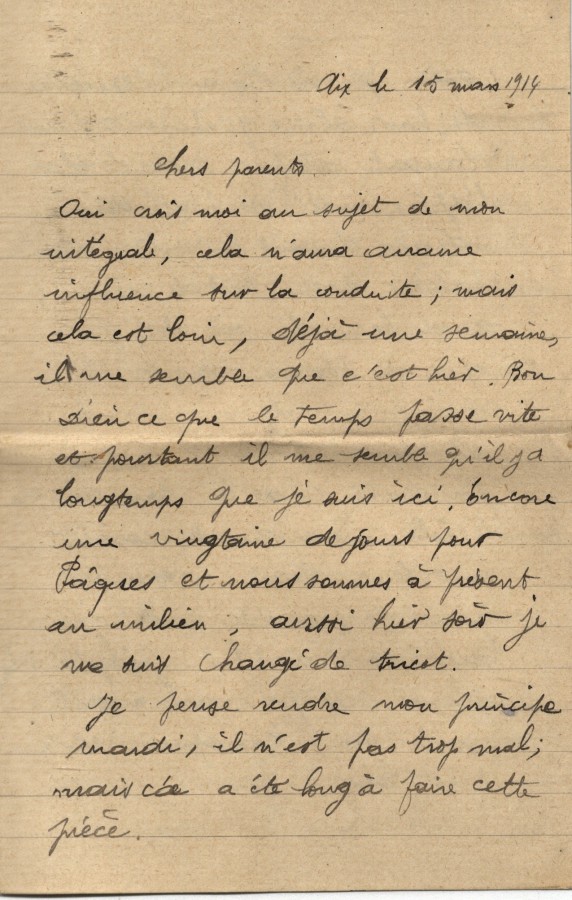 Aix le 15 mars 1914
Chers parents
Oui crois moi au sujet de mon
intégrale, cela n'aura aucune
influence sur la conduite ; mais
cela est loin, déjà une semaine,
il me semble que c'est hier. Bon
Dieu ce que le temps passe vite
et pourtant il me semble qu'il y a
longtemps que je suis ici. Encore
une vingtaine de jours pour
Pâques et nous sommes à présent
au milieu, aussi hier soir je
me suis changé de tricot.
Je pense rendre mon principe
mardi, il n'est pas trop mal ;
mais ça a été long à faire cette
pièce.